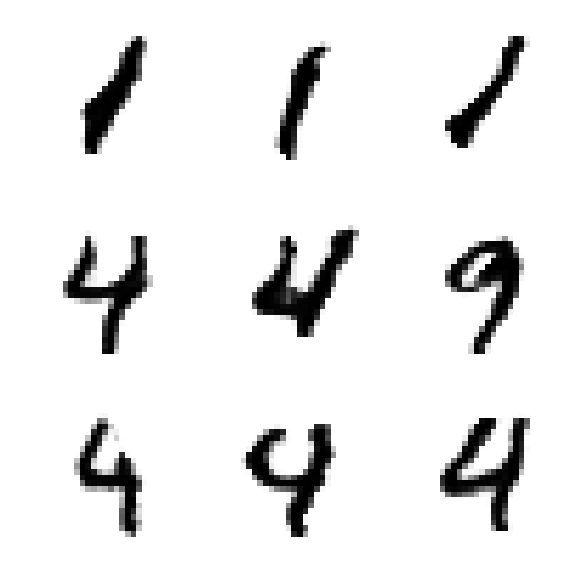 1 1 1
4 4 9
4 4 4